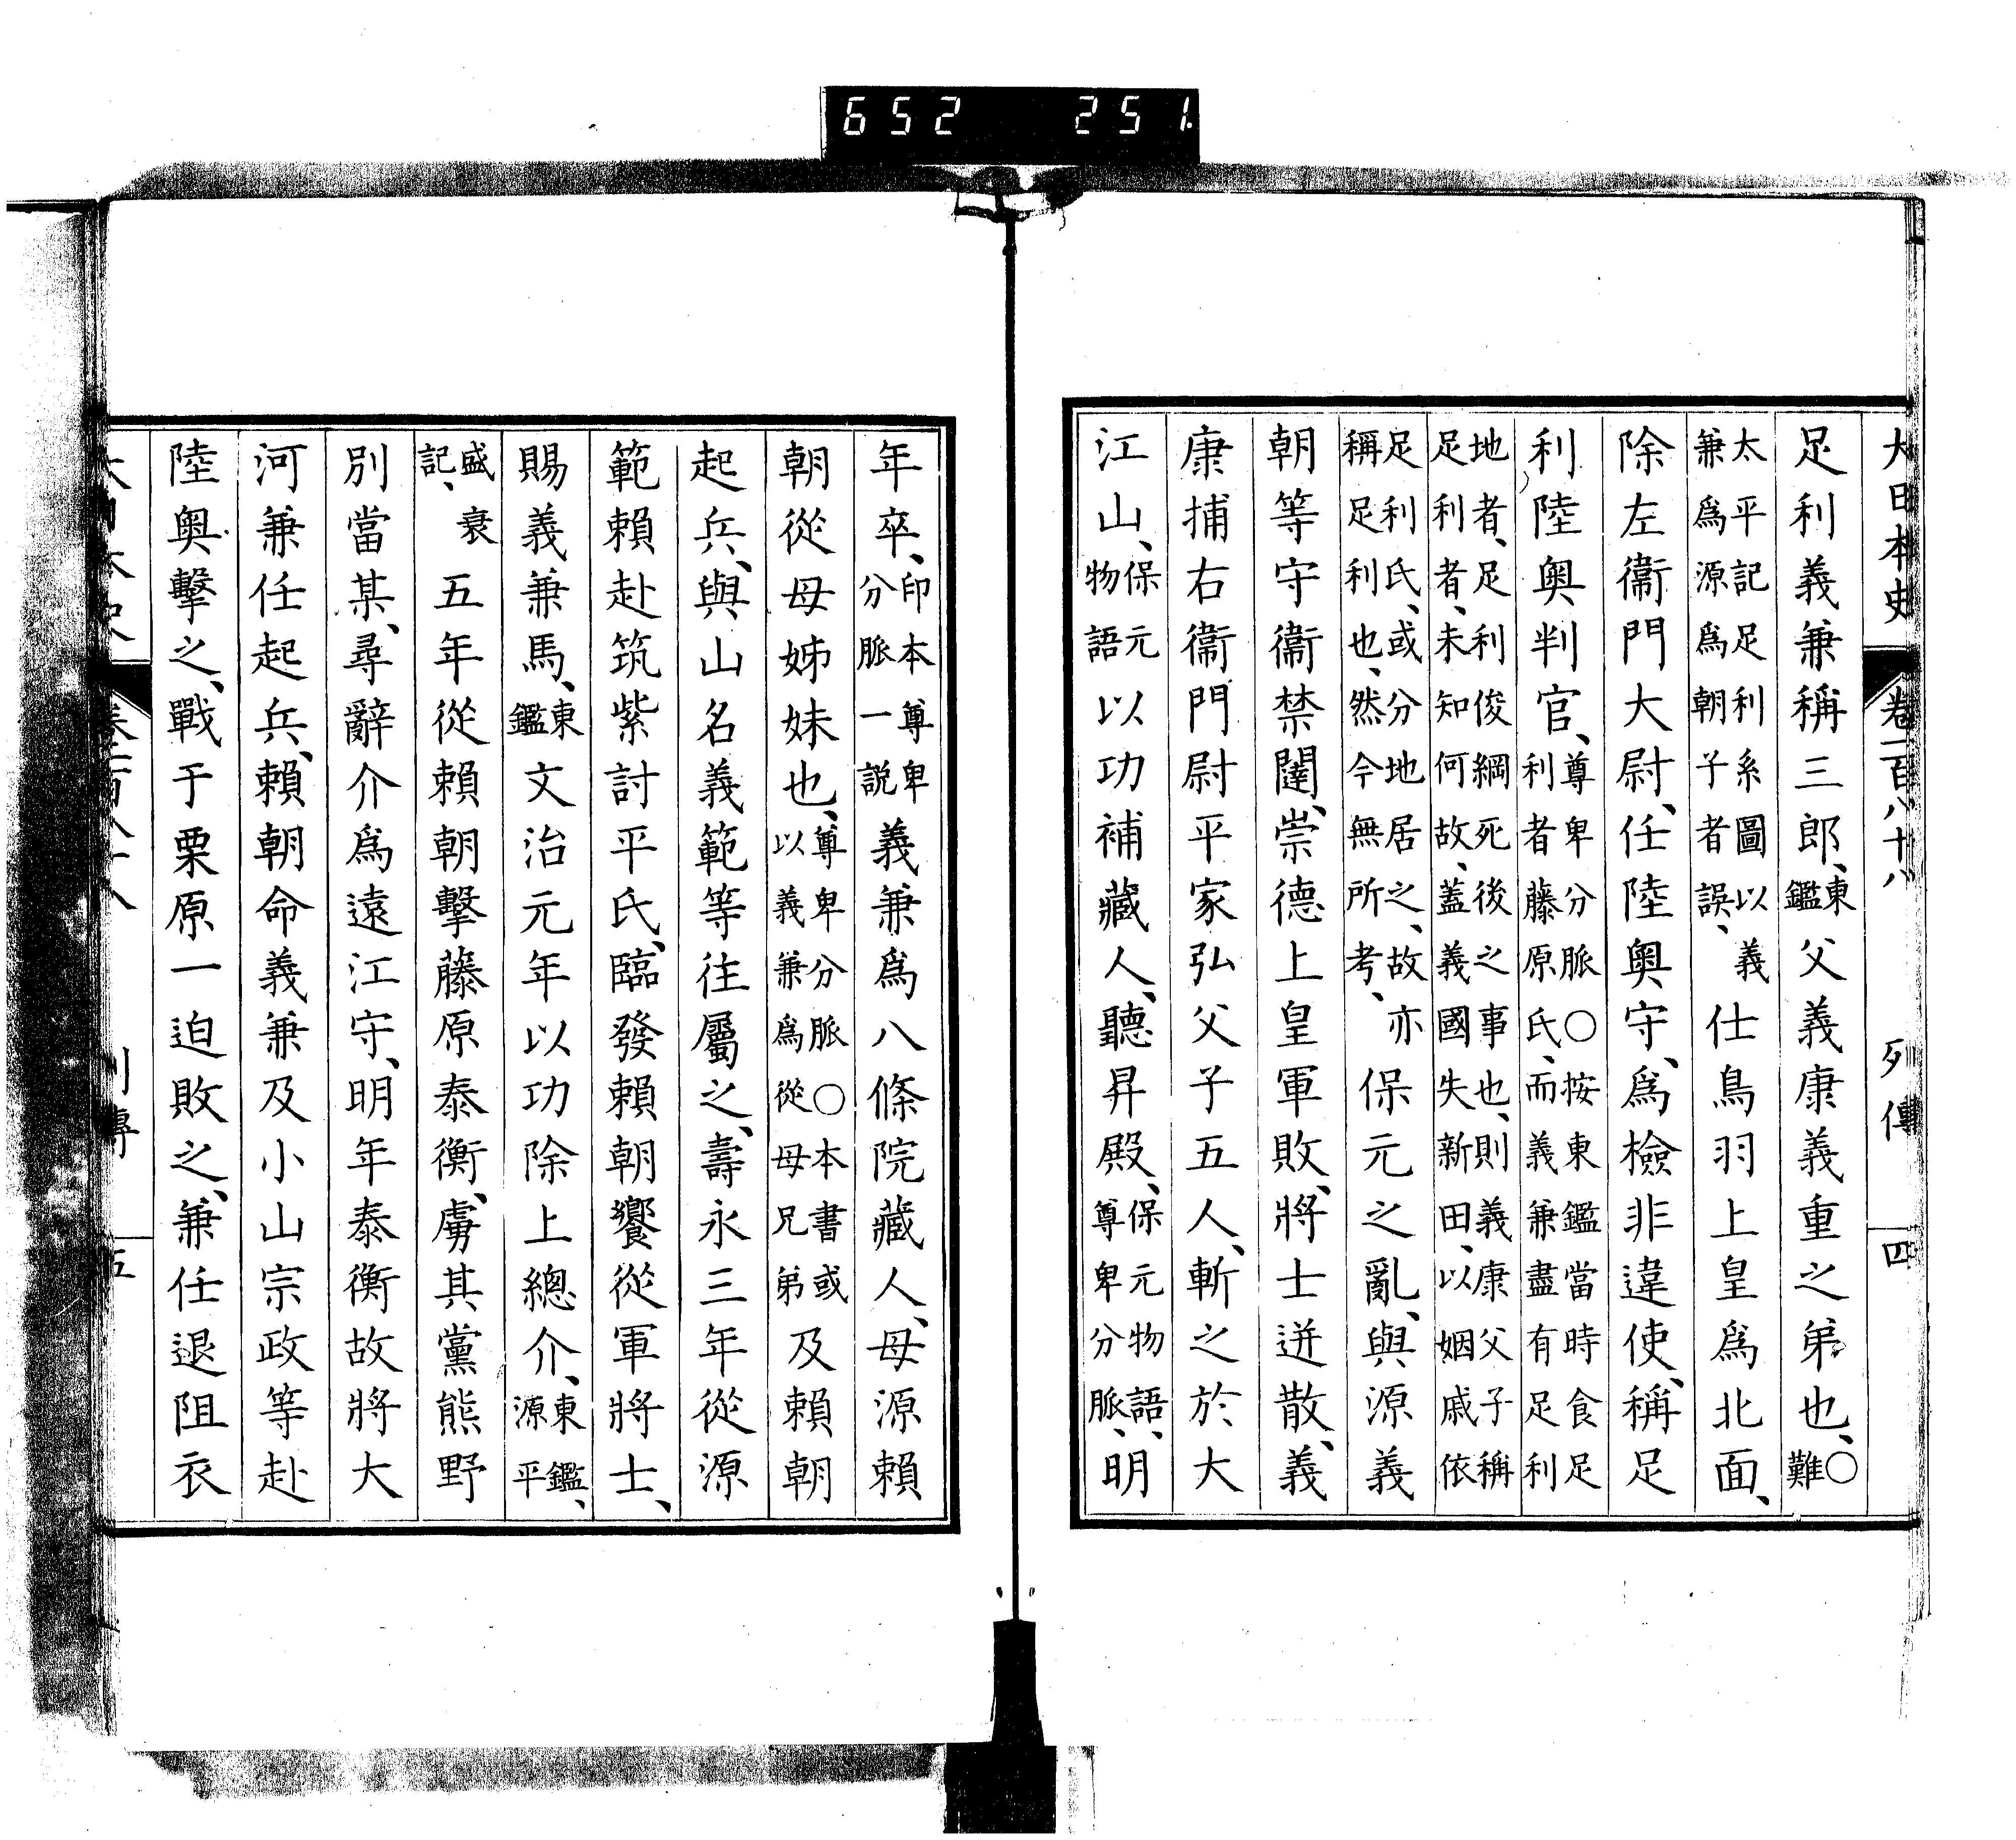 652 251.
大日本史 卷一百八十八 列傳 四
足利義兼稱三郎、東鑑父義康義重之弟也、○難
太平記足利系圖以義兼爲源爲朝子者誤、仕鳥羽上皇爲北面、
除左衞門大尉、任陸奧守、爲檢非違使、稱足
利陸奧判官、尊卑分脈○按東鑑當時食足利者藤原氏、而義兼盡有足利
地者、足利俊綱死後之事也、則義康父子稱足利者、未知何故、蓋義國失新田、以姻戚依
足利氏、或分地居之、故亦稱足利也、然今無所考、保元之亂、與源義
朝等守衞禁闥、崇德上皇軍敗、將士迸散、義
康捕右衞門尉平家弘父子五人、斬之於大
江山、保元物語以功補藏人、聽昇殿、保元物語、尊卑分脈、明
年卒、印本尊卑分脈一說義兼爲八條院藏人、母源賴
朝從母姊妹也、尊卑分脈○本書或以義兼爲從母兄弟及賴朝
起兵、與山名義範等往屬之、壽永三年從源
範賴赴筑紫討平氏、臨發賴朝饗從軍將士、
賜義兼馬、東鑑文治元年以功除上總介、東鑑、源平
盛衰記、五年從賴朝擊藤原泰衡、虜其黨熊野
別當某、尋辭介爲遠江守、明年泰衡故將大
河兼任起兵、賴朝命義兼及小山宗政等赴
陸奧擊之、戰于栗原一迫敗之、兼任退阻衣
列傳 五